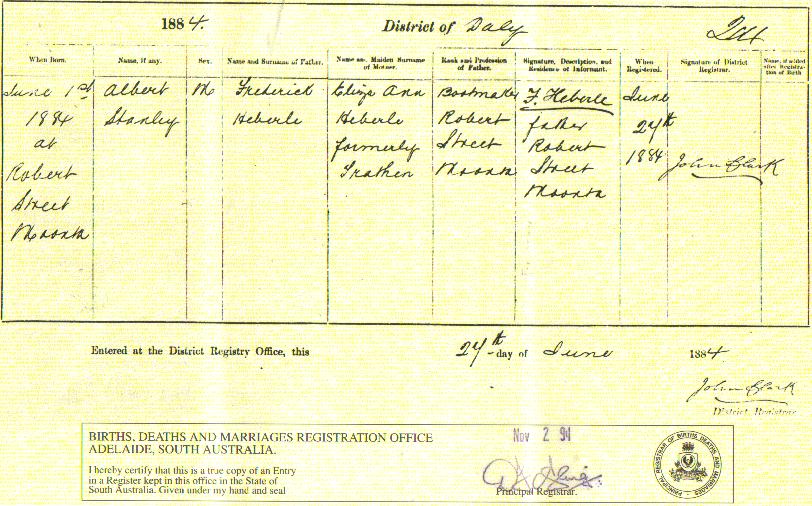 1884. District of Daly
When Born. Name, if any. Sex. Name and Surname of Father. Name and Maiden Surname of Mother. Rank and Profession of Father. Signature, Description, and Residence of Informant. When Registered. Signature of District Registrar. Name, if added after Registration of Birth
June 1st Albert M Frederick Eliza Ann Bootmaker F. Heberle June
1884 Stanley Heberle Heberle Robert father 27th
at formerly Street Robert 1884 John Clark
Robert Trathen Moonta Street
Street Moonta
Moonta
Entered at the District Registry Office, this 27th day of June 1884
John Clark
District Registrar
BIRTHS, DEATHS AND MARRIAGES REGISTRATION OFFICE
ADELAIDE, SOUTH AUSTRALIA.
Nov 2 94
I hereby certify that this is a true copy of an Entry
in a Register kept in this office in the State of
South Australia. Given under my hand and seal
Principal Registrar.
PRINCIPAL REGISTRAR OF BIRTHS DEATHS AND MARRIAGES